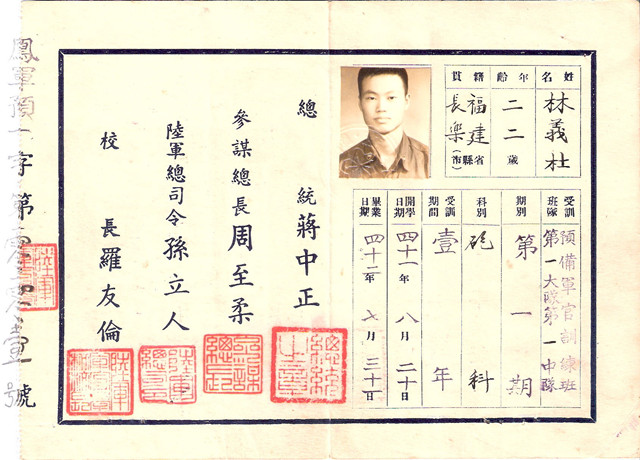 姓名 林義杜
年齡 二二歲
籍貫 福建省 長樂縣(市)
受訓班隊 預備軍官訓練班第一大隊第一中隊
期別 第一期
科別 砲科
受訓期間 壹年
開學日期 四十一年八月二十日
畢業日期 四十二年七月三十一日
總統 蔣中正
參謀總長 周至柔
陸軍總司令 孫立人
校長 羅友倫
總統之章
鳳軍預一字第
號